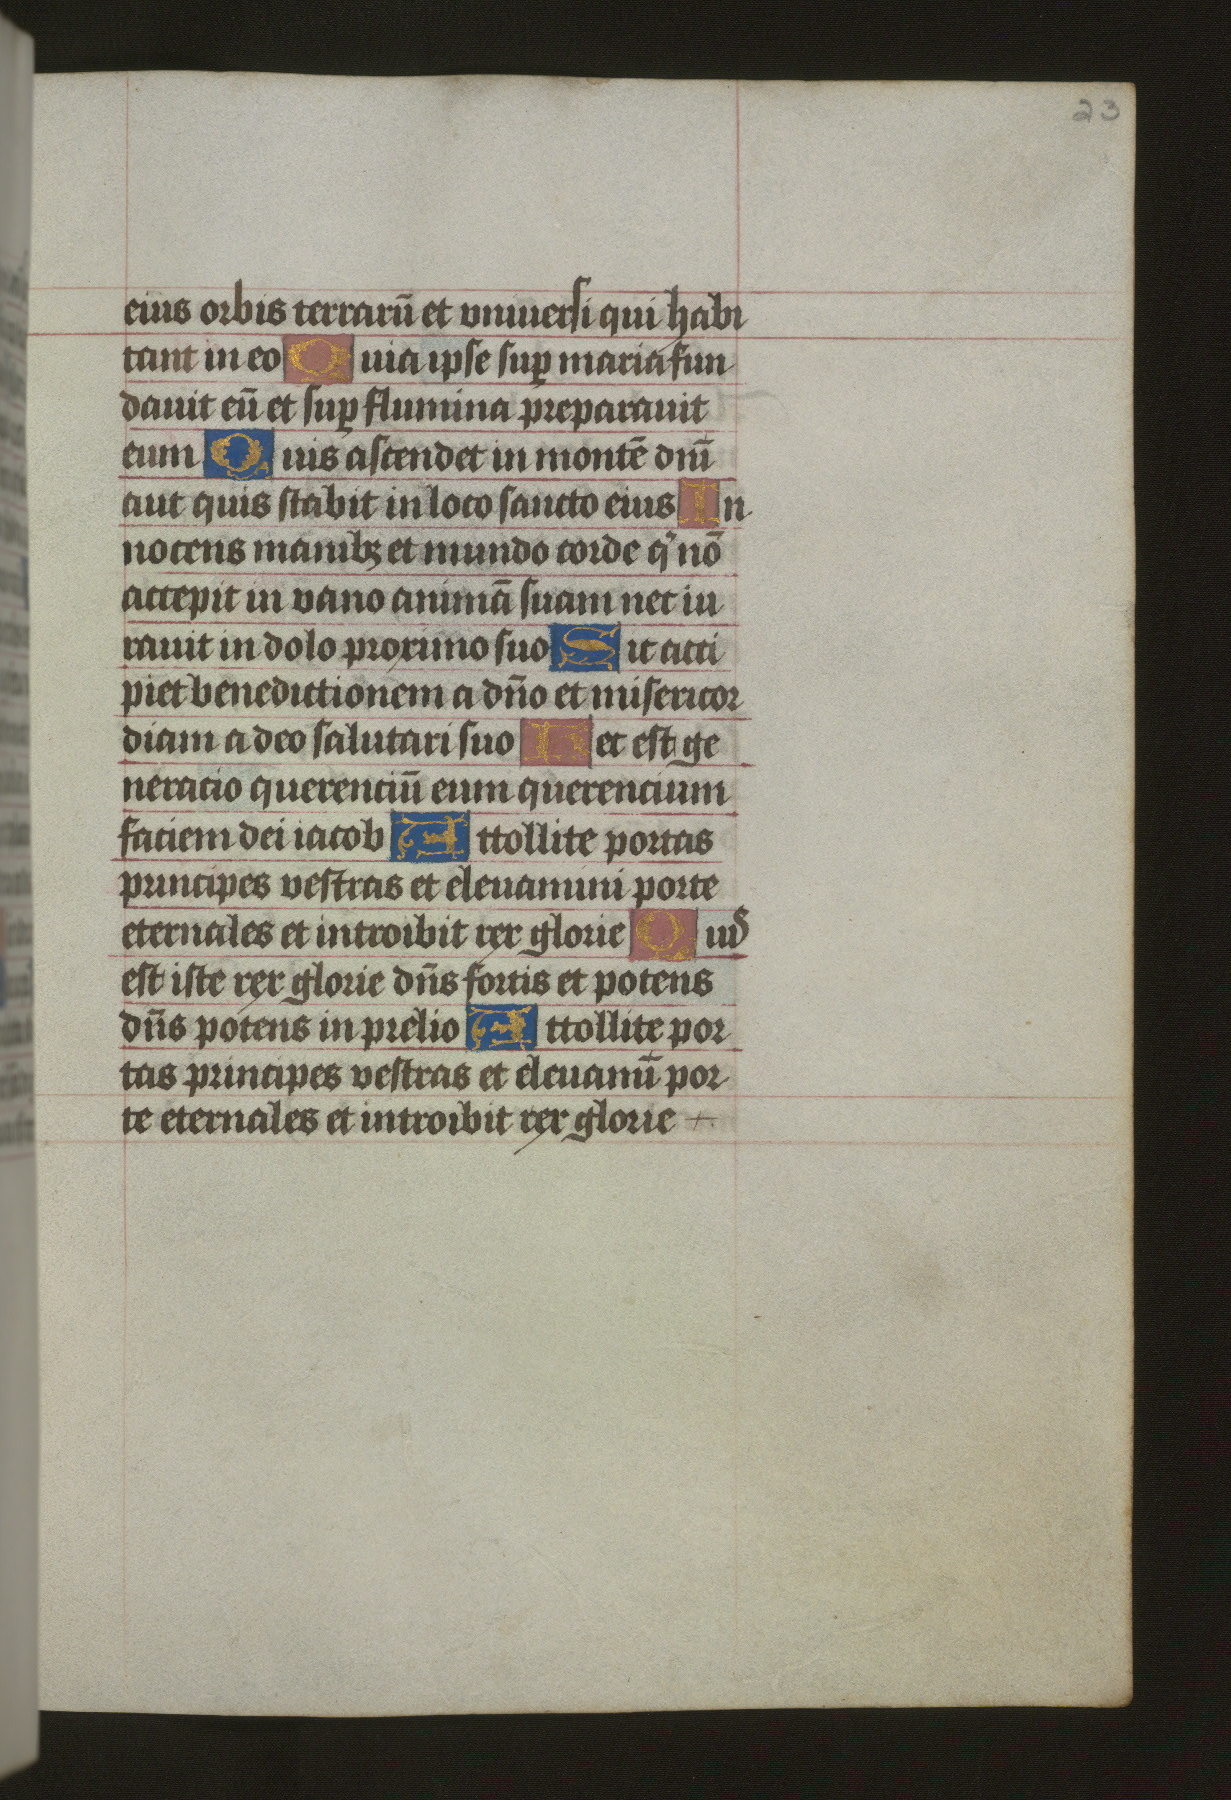 23
eius orbis terrarū et vniuersi qui habi
tant in eo Quia ipse sup̱ maria fun
dauit eū et sup̱ flumina preparauit
eum Quis ascendet in montē dn̄i
aut quis stabit in loco sancto eius In
nocens manibꝫ et mundo corde qͥ nō
accepit in vano animā suam nec iu
rauit in dolo proximo suo Sic acci
piet benedictionem a dn̄o et misericor
diam a deo salutari suo Hec est ge
neracio querenciū eum querencium
faciem dei iacob Attollite portas
principes vestras et eleuamini porte
eternales et introibit rex glorie Quis
est iste rex glorie dn̄s fortis et potens
dn̄s potens in prelio Attollite por
tas principes vestras et eleuamī por
te eternales et introibit rex glorie